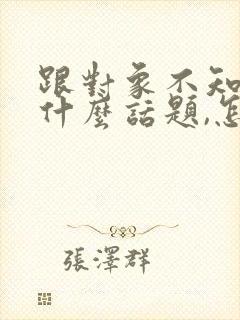 跟對象不知
什麼話題,怎
張澤群